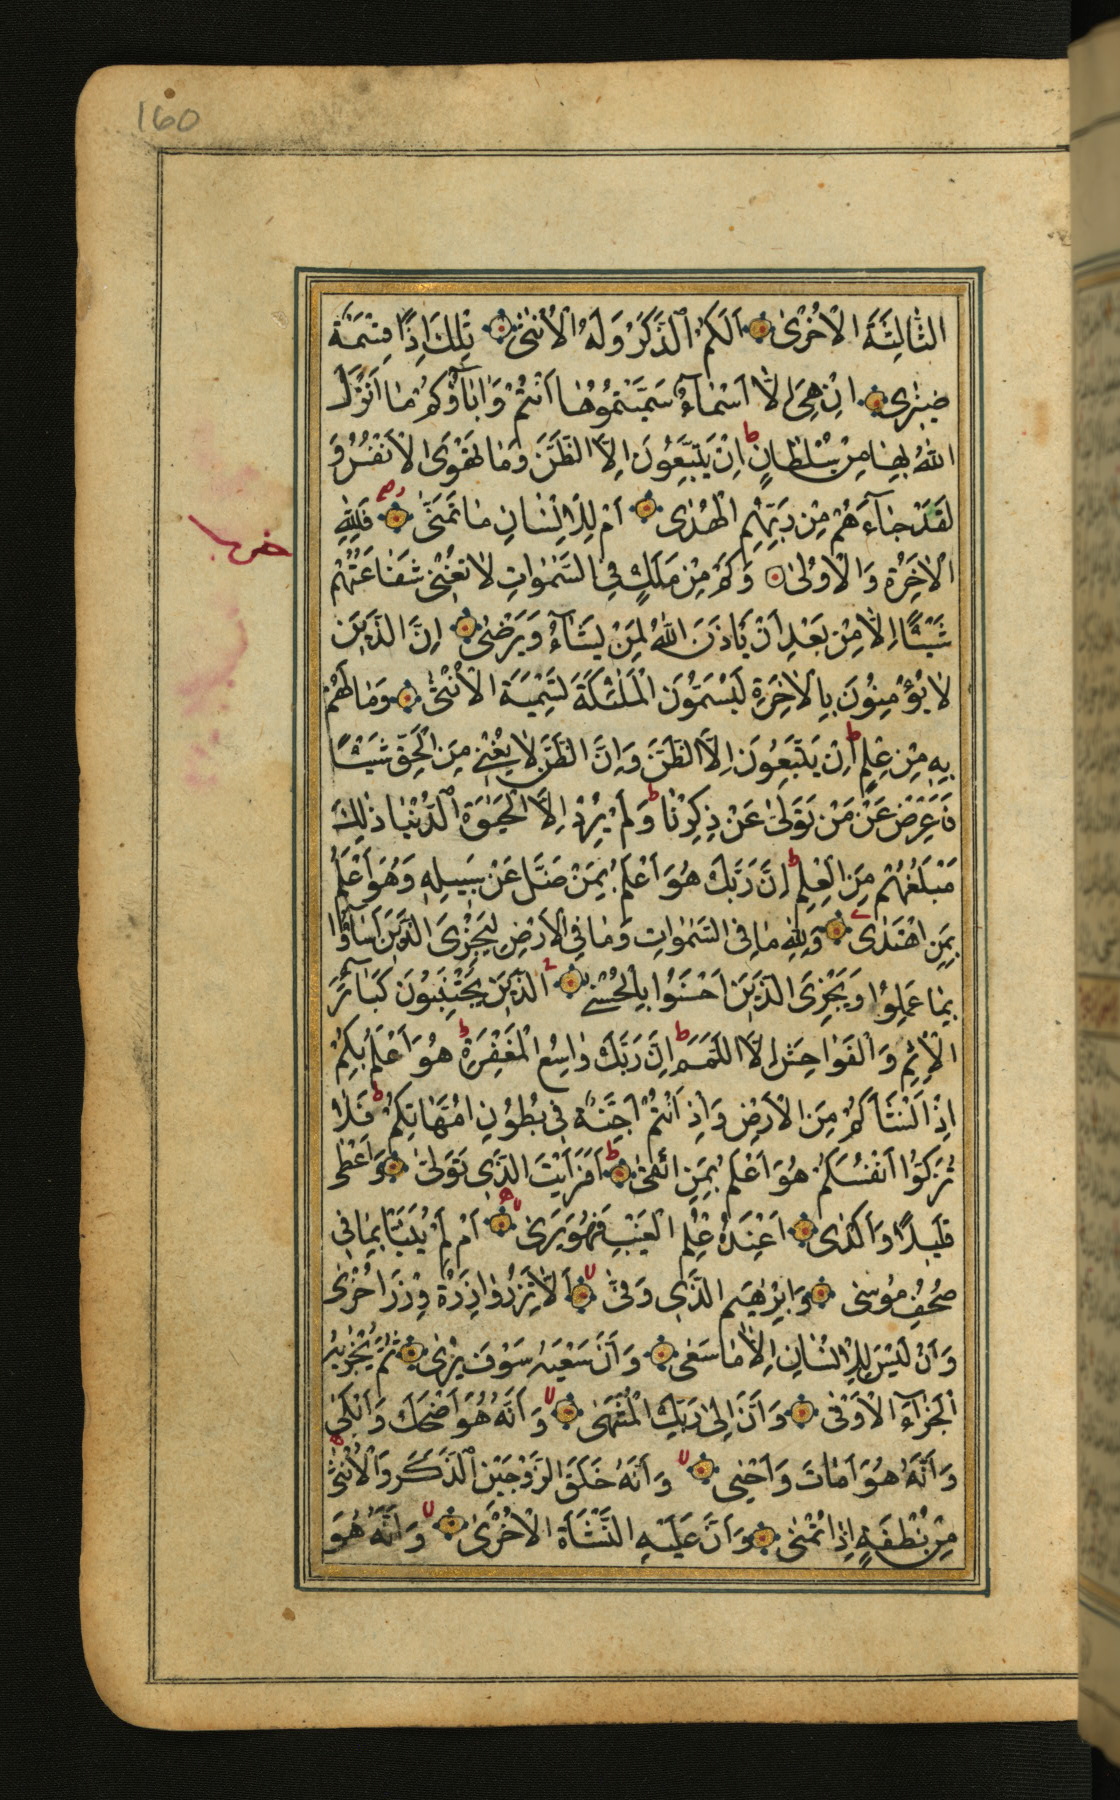 160
الثَّالِثَةَ الْاُخْرٰى اَلَكُمُ الذَّكَرُ وَلَهُ الْاُنْثٰى تِلْكَ اِذًا قِسْمَةٌ
ضِيزٰى اِنْ هِيَ اِلَّا اَسْمَاءٌ سَمَّيْتُمُوهَا اَنْتُمْ وَاٰبَاؤُكُمْ مَا اَنْزَلَ
اللهُ بِهَا مِنْ سُلْطَانٍ ط اِنْ يَتَّبِعُونَ اِلَّا الظَّنَّ وَمَا تَهْوَى الْاَنْفُسُ وَ
لَقَدْ جَاءَهُمْ مِنْ رَبِّهِمُ الْهُدٰى اَمْ لِلْاِنْسَانِ مَا تَمَنّٰى فَلِلّٰهِ
الْاٰخِرَةُ وَالْاُولٰى وَكَمْ مِنْ مَلَكٍ فِي السَّمٰوَاتِ لَا تُغْنِي شَفَاعَتُهُمْ
شَيْئًا اِلَّا مِنْ بَعْدِ اَنْ يَاْذَنَ اللهُ لِمَنْ يَشَاءُ وَيَرْضٰى اِنَّ الَّذِينَ
لَا يُؤْمِنُونَ بِالْاٰخِرَةِ لَيُسَمُّونَ الْمَلٰئِكَةَ تَسْمِيَةَ الْاُنْثٰى وَمَا لَهُمْ
بِهِ مِنْ عِلْمٍ ط اِنْ يَتَّبِعُونَ اِلَّا الظَّنَّ وَاِنَّ الظَّنَّ لَا يُغْنِي مِنَ الْحَقِّ شَيْئًا
فَاَعْرِضْ عَنْ مَنْ تَوَلّٰى عَنْ ذِكْرِنَا ط وَلَمْ يُرِدْ اِلَّا الْحَيٰوةَ الدُّنْيَا ذٰلِكَ
مَبْلَغُهُمْ مِنَ الْعِلْمِ ط اِنَّ رَبَّكَ هُوَ اَعْلَمُ بِمَنْ ضَلَّ عَنْ سَبِيلِهِ وَهُوَ اَعْلَمُ
بِمَنِ اهْتَدٰى وَلِلّٰهِ مَا فِي السَّمٰوَاتِ وَمَا فِي الْاَرْضِ لِيَجْزِيَ الَّذِينَ اَسَاؤُا
بِمَا عَمِلُوا وَيَجْزِيَ الَّذِينَ اَحْسَنُوا بِالْحُسْنٰى اَلَّذِينَ يَجْتَنِبُونَ كَبَائِرَ
الْاِثْمِ وَالْفَوَاحِشَ اِلَّا اللَّمَمَ ط اِنَّ رَبَّكَ وَاسِعُ الْمَغْفِرَةِ ط هُوَ اَعْلَمُ بِكُمْ
اِذْ اَنْشَاَكُمْ مِنَ الْاَرْضِ وَاِذْ اَنْتُمْ اَجِنَّةٌ فِي بُطُونِ اُمَّهَاتِكُمْ ط فَلَا
تُزَكُّوا اَنْفُسَكُمْ هُوَ اَعْلَمُ بِمَنِ اتَّقٰى ط اَفَرَاَيْتَ الَّذِي تَوَلّٰى وَاَعْطٰى
قَلِيلًا وَاَكْدٰى اَعِنْدَهُ عِلْمُ الْغَيْبِ فَهُوَ يَرٰى اَمْ لَمْ يُنَبَّاْ بِمَا فِي
صُحُفِ مُوسٰى وَاِبْرٰهِيمَ الَّذِي وَفّٰى اَلَّا تَزِرُ وَازِرَةٌ وِزْرَ اُخْرٰى
وَاَنْ لَيْسَ لِلْاِنْسَانِ اِلَّا مَا سَعٰى وَاَنَّ سَعْيَهُ سَوْفَ يُرٰى ثُمَّ يُجْزٰيهُ
الْجَزَاءَ الْاَوْفٰى وَاَنَّ اِلٰى رَبِّكَ الْمُنْتَهٰى وَاَنَّهُ هُوَ اَضْحَكَ وَاَبْكٰى
وَاَنَّهُ هُوَ اَمَاتَ وَاَحْيٰى وَاَنَّهُ خَلَقَ الزَّوْجَيْنِ الذَّكَرَ وَالْاُنْثٰى
مِنْ نُطْفَةٍ اِذَا تُمْنٰى وَاَنَّ عَلَيْهِ النَّشْاَةَ الْاُخْرٰى وَاَنَّهُ هُوَ